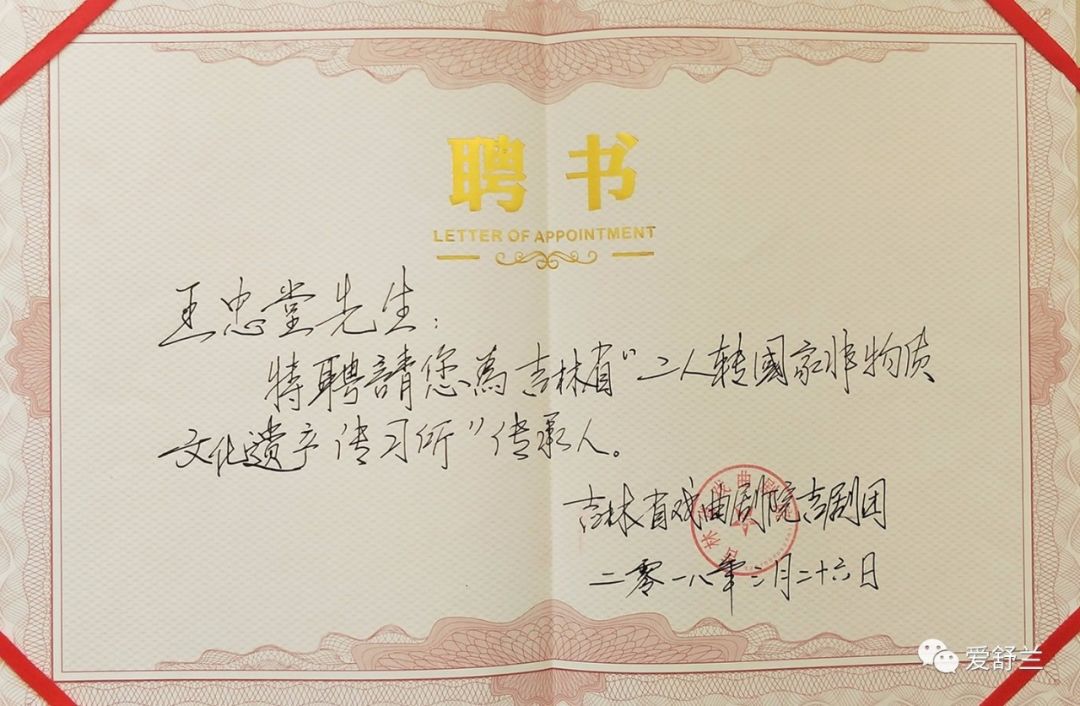 聘书
LETTER OF APPOINTMENT
王忠堂先生：
特聘請您為吉林省“二人转國家非物质
文化遗产传习所”传承人。
吉林省戏曲剧院吉剧团
二零一八年二月二十六日
爱舒兰